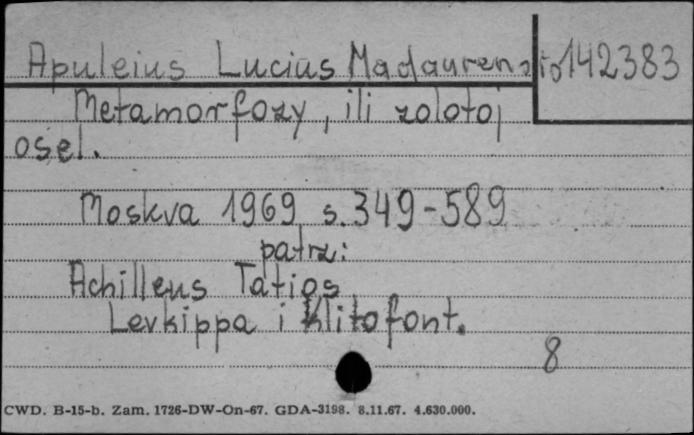 Apuleius Lucius Madaurens 142383
Metamorfozy, ili zolotoj
osel.
Moskva 1969 s. 349-589
patrz:
Achilleus Tatios
Levkippa i Klitofont.
8
CWD. B-15-b. Zam. 1726-DW-On-67. GDA-3198. 8.11.67. 4.630.000.